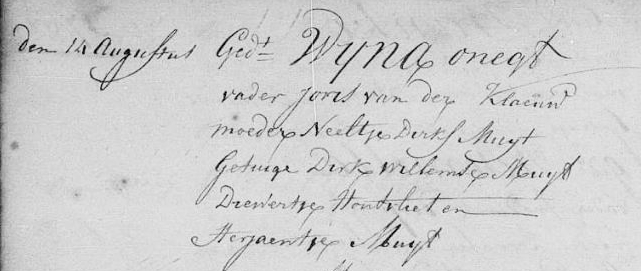 den 14 Augustus Ged:t Wijna onegt
vader Joris van der Klaeuw
moeder Neeltje Dirks Muijt
Getuige Dirk Willemse Muijt
Diewertje Houtvliet en
Herjaentje Muijt